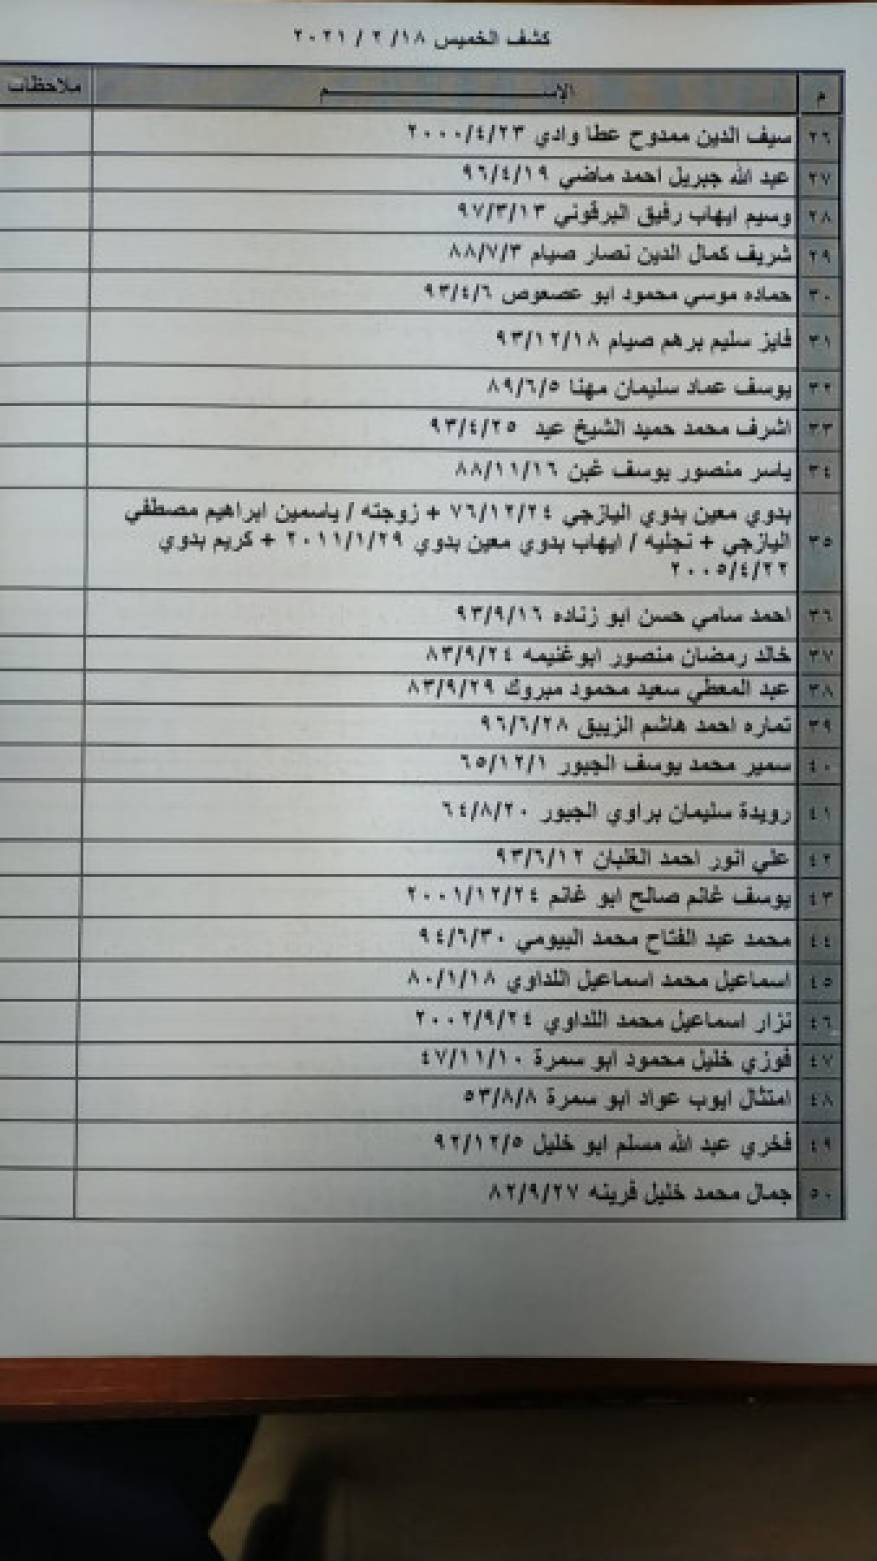 كشف الخميس ١٨/ ٢ / ٢٠٢١
م الإســـــــــــم ملاحظات
٢٦ سيف الدين ممدوح عطا وادي ٢٠٠٠/٤/٢٣
٢٧ عبد الله جبريل احمد ماضي ٩٦/٤/١٩
٢٨ وسيم ايهاب رفيق البرقوني ٩٧/٣/١٣
٢٩ شريف كمال الدين نصار صيام ٨٨/٧/٣
٣٠ حماده موسي محمود ابو عصعوص ٩٣/٤/٦
٣١ فايز سليم برهم صيام ٩٣/١٢/١٨
٣٢ يوسف عماد سليمان مهنا ٨٩/٦/٥
٣٣ اشرف محمد حميد الشيخ عيد ٩٣/٤/٢٥
٣٤ ياسر منصور يوسف غبن ٨٨/١١/١٦
٣٥ بدوي معين بدوي اليازجي ٧٦/١٢/٢٤ + زوجته / ياسمين ابراهيم مصطفي
اليازجي + نجليه / ايهاب بدوي معين بدوي ٢٠١١/١/٢٩ + كريم بدوي
٢٠٠٥/٤/٢٢
٣٦ احمد سامي حسن ابو زناده ٩٣/٩/١٦
٣٧ خالد رمضان منصور ابوغنيمه ٨٣/٩/٢٤
٣٨ عبد المعطي سعيد محمود مبروك ٨٣/٩/٢٩
٣٩ تماره احمد هاشم الزيبق ٩٦/٦/٢٨
٤٠ سمير محمد يوسف الجبور ٦٥/١٢/١
٤١ رويدة سليمان براوي الجبور ٦٤/٨/٢٠
٤٢ علي انور احمد الغلبان ٩٣/٦/١٢
٤٣ يوسف غانم صالح ابو غانم ٢٠٠١/١٢/٢٤
٤٤ محمد عبد الفتاح محمد البيومي ٩٤/٦/٣٠
٤٥ اسماعيل محمد اسماعيل اللداوي ٨٠/١/١٨
٤٦ نزار اسماعيل محمد اللداوي ٢٠٠٢/٩/٢٤
٤٧ فوزي خليل محمود ابو سمرة ٤٧/١١/١٠
٤٨ امتثال ايوب عواد ابو سمرة ٥٣/٨/٨
٤٩ فخري عبد الله مسلم ابو خليل ٩٢/١٢/٥
٥٠ جمال محمد خليل قرينه ٨٢/٩/٢٧